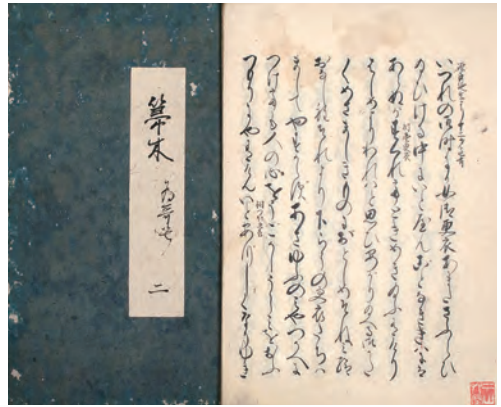 いつれの御時にか女御更衣あまたさふらひ
給ひける中にいとやんことなききはに
あらぬかすくれてときめき給ふありけり
はしめよりわれはと思ひあかり給へる御かた
くめさましきものにおとしめそねみ給
おなし程それより下らうの更衣たちは
ましてやすからすあさゆふのみやつかへに
つけても人の心をうこかしうらみをおふ
つもりにやありけんいとあつしくなりゆき
箒木
二